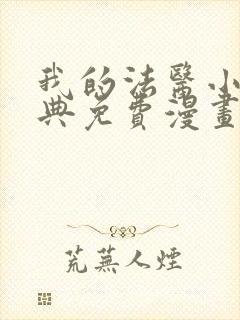 我的法醫小
典免費漫畫
荒蕪人煙